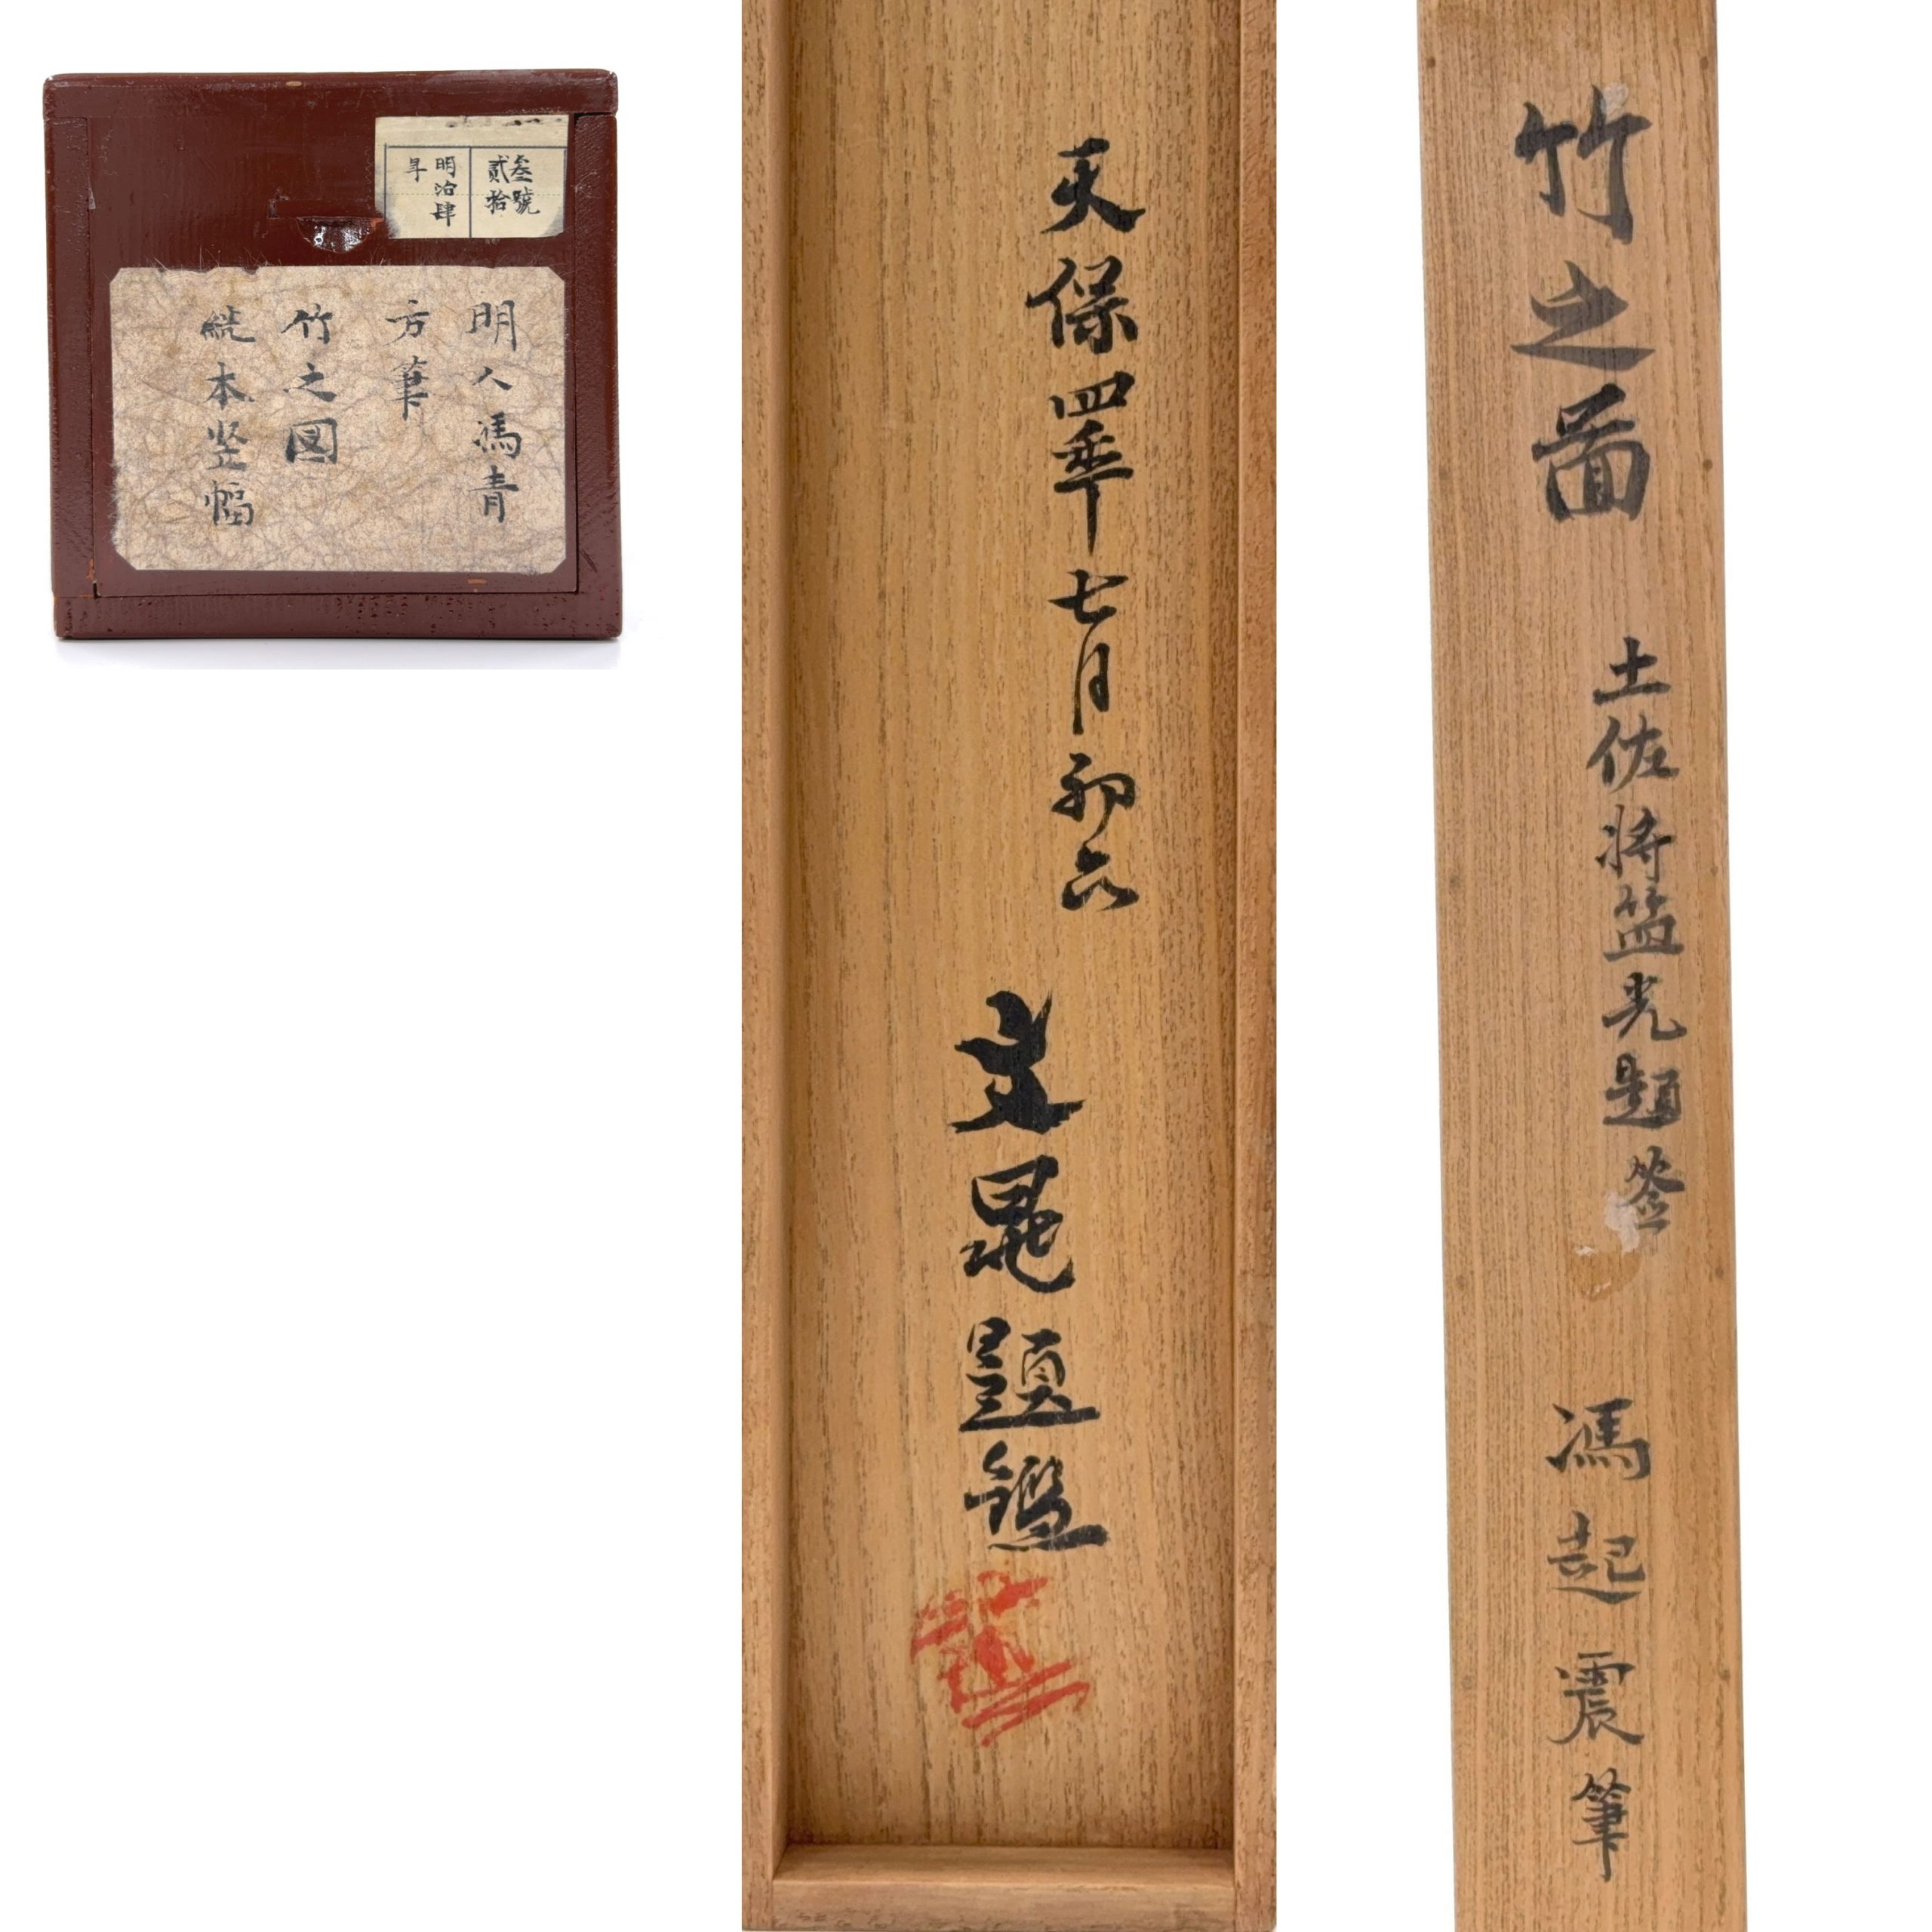 叁號
貳拾
明治肆
年
明人馮青
方筆
竹之圖
絖本竖幅
天保四年七月初六
文晁題鑑
竹之圖
土佐将監光題簽
馮起震筆